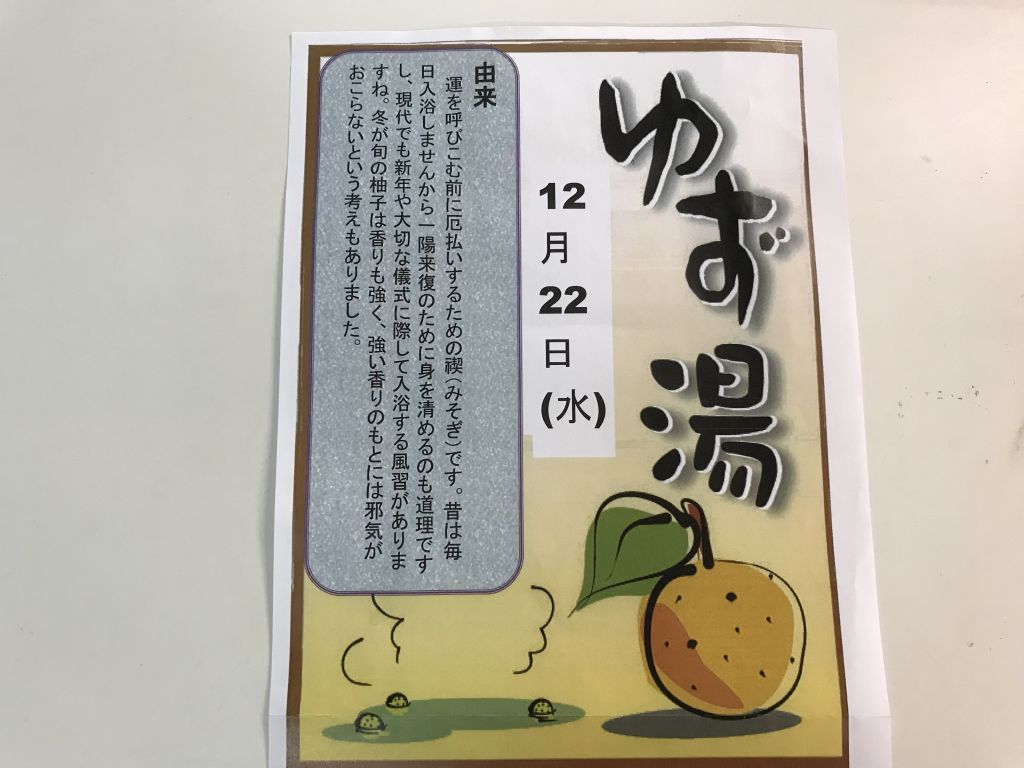 ゆず湯
12
月
22
日
(水)
由来
運を呼びこむ前に厄払いするための禊(みそぎ)です。昔は毎
日入浴しませんから一陽来復のために身を清めるのも道理です
し、現代でも新年や大切な儀式に際して入浴する風習がありま
すね。冬が旬の柚子は香りも強く、強い香りのもとには邪気が
おこらないという考えもありました。